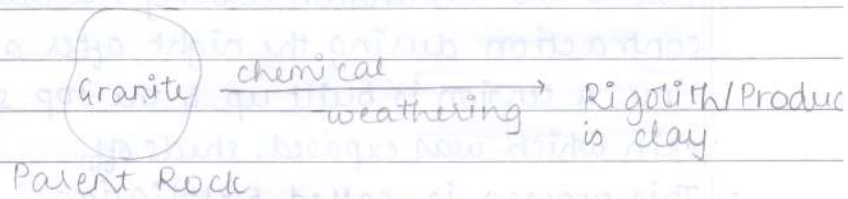 Granite chemical weathering → Rigolith/Produc
is clay
Parent Rock